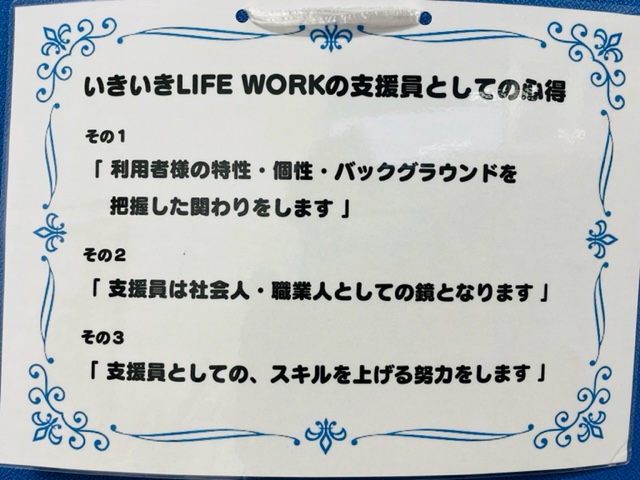 いきいきLIFE WORKの支援員としての心得
その1
「 利用者様の特性・個性・バックグラウンドを
把握した関わりをします 」
その2
「 支援員は社会人・職業人としての鏡となります 」
その3
「 支援員としての、スキルを上げる努力をします 」